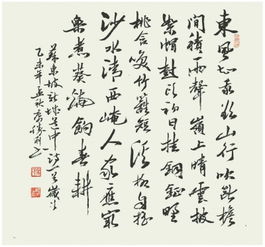 東風知我欲山行吹斷檐
間積雨聲嶺上晴雲披
絮帽樹頭初日挂銅鉦野
桃含笑竹籬短溪柳自搖
沙水清西崦人家應最
樂煮葵燒筍餉春耕
蘇東坡新城道中詩一首
乙未年孟秋